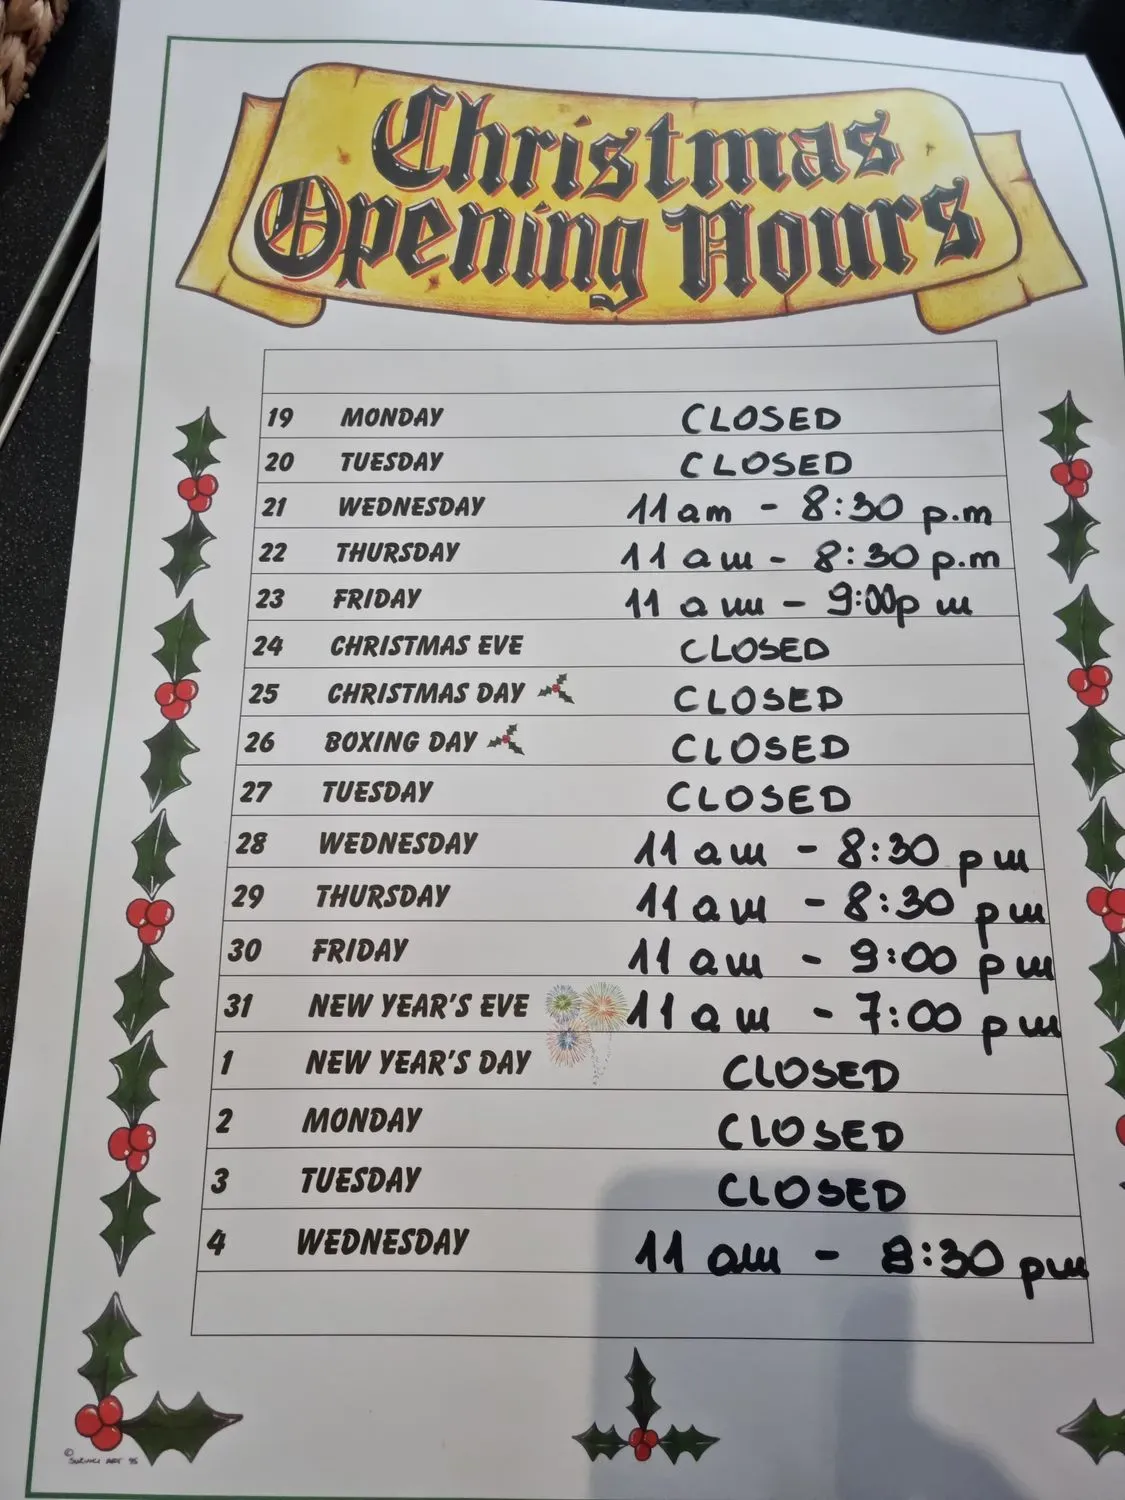 Christmas
Opening Hours
19 MONDAY CLOSED
20 TUESDAY CLOSED
21 WEDNESDAY 11am - 8:30 p.m
22 THURSDAY 11 am - 8:30 p.m
23 FRIDAY 11 am - 9:00pm
24 CHRISTMAS EVE CLOSED
25 CHRISTMAS DAY CLOSED
26 BOXING DAY CLOSED
27 TUESDAY CLOSED
28 WEDNESDAY 11 am - 8:30 pm
29 THURSDAY 11 am - 8:30 pm
30 FRIDAY 11 am - 9:00 pm
31 NEW YEAR'S EVE 11 am - 7:00 pm
1 NEW YEAR'S DAY CLOSED
2 MONDAY CLOSED
3 TUESDAY CLOSED
4 WEDNESDAY 11 am - 8:30 pm
©
ART 95